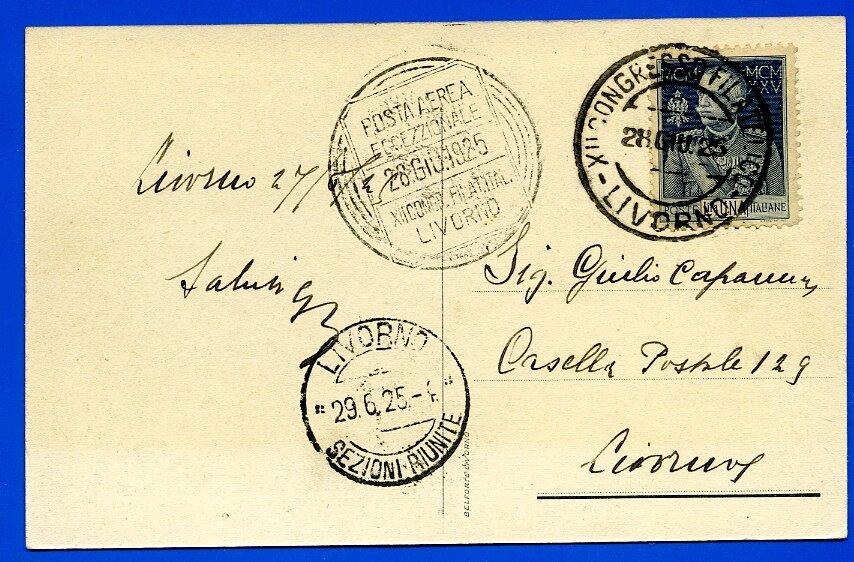 Livorno 27/6/25
Saluti
POSTA AEREA
ECCEZZIONALE
28.GIU.1925
XII CONGR. FILAT. ITAL.
LIVORNO
XII CONGRESSO FILATELICO
28.GIU.25
LIVORNO
MCM
XXV
POSTE LIRE UNA ITALIANE
Sig. Giulio
Casella Postale 129
Livorno
LIVORNO
29.6.25.-4
SEZIONI RIUNITE
BELFORTE LIVORNO